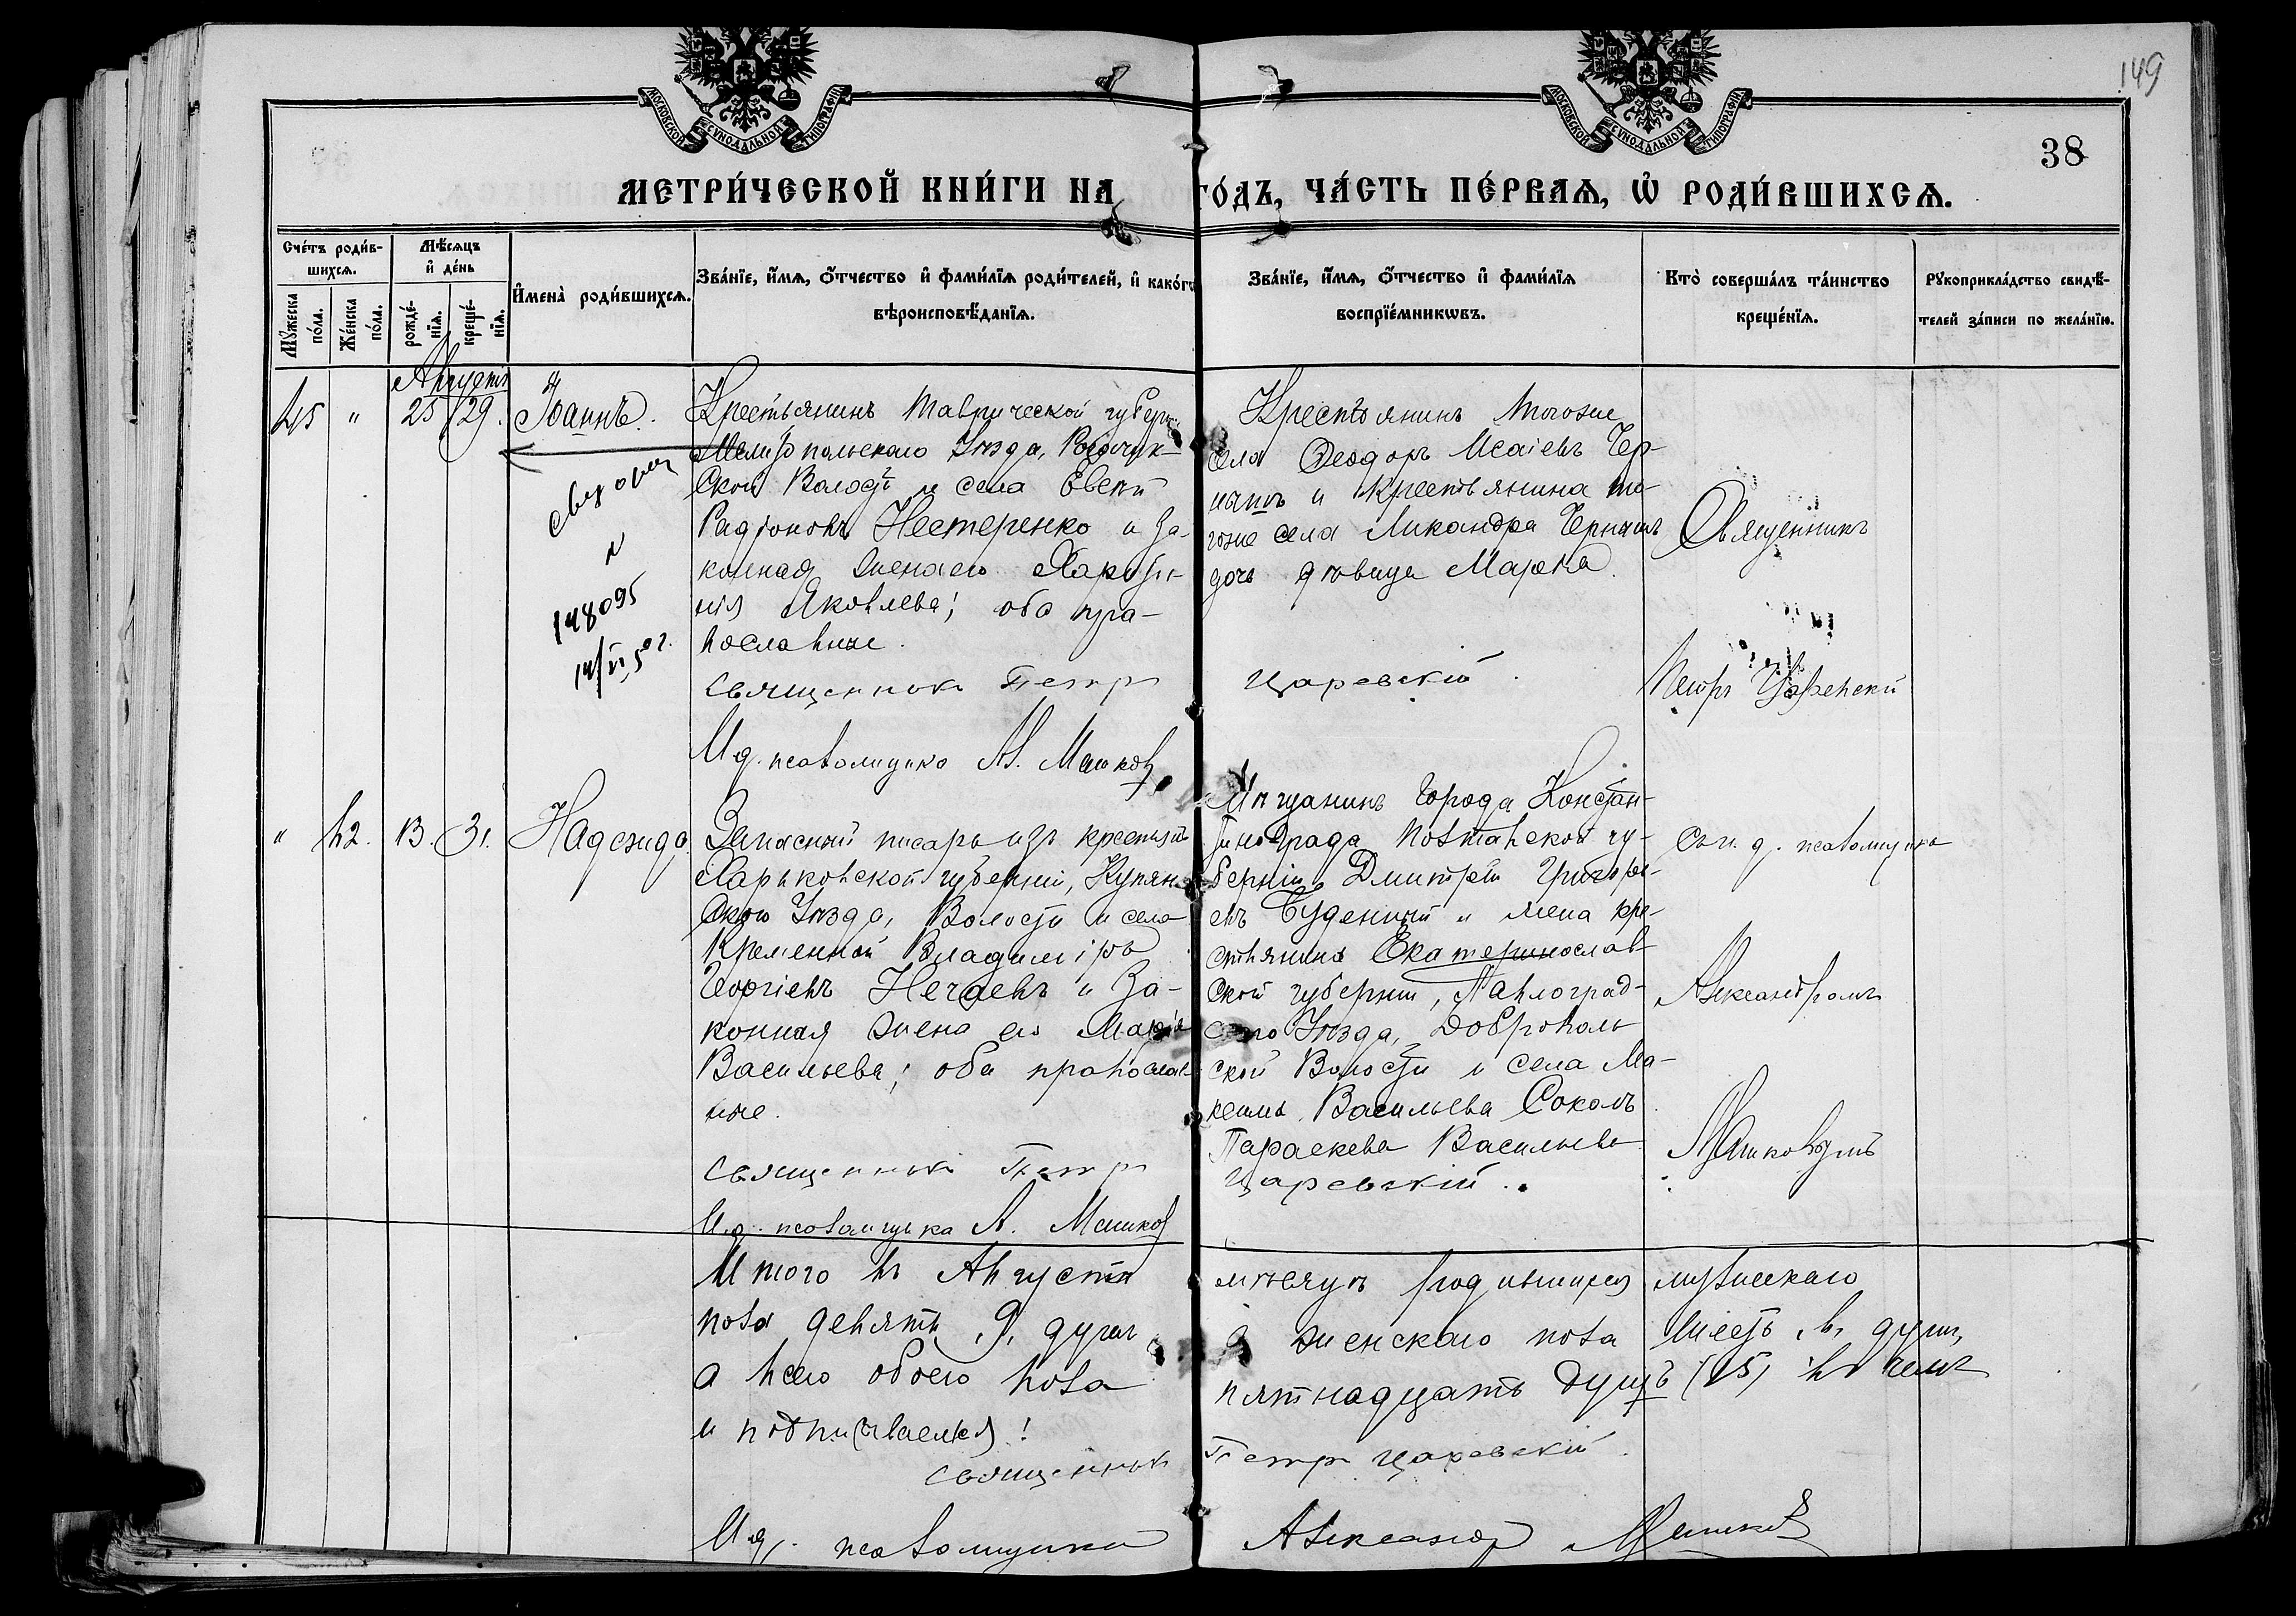 149
МОСКОВСКОЙ СѴНОДАЛЬНОЙ ТИПОГРАФІИ
МОСКОВСКОЙ СѴНОДАЛЬНОЙ ТИПОГРАФІИ
38
МЕТРИ́ЧЕСКОЙ КНИ́ГИ НА ГО́ДЪ, ЧА́СТЬ ПЕ́РВАѦ, Ѡ҆ РОДИ́ВШИХСѦ.
Сче́тъ роди́в-
шихсѧ.
Мꙋ́жеска по́ла.
Же́нска по́ла.
Мѣ́сѧцъ
и҆ де́нь
рожде́-
нїѧ.
креще́-
нїѧ.
И҆мена̀ роди́вшихсѧ.
Зва́нїе, и҆́мѧ, ѻ҆́тчество и҆ фами́лїѧ роди́телей, и҆ како́гѡ
вѣроисповѣ́данїѧ.
Зва́нїе, и҆́мѧ, ѻ҆́тчество и҆ фами́лїѧ
воспрїе́мникѡвъ.
Кто̀ соверша́лъ та́инство
креще́нїѧ.
Рꙋкоприкла́дство свидѣ́-
телей за́писи по жела́нїю.
Августъ
45 " 25 29. Іоаннъ.
Крестьянинъ Таврической губерн.
Мелитопольскаго Уѣзда, Рогачик-
ской Волости и села Евсей
Радіоновъ Нестеренко и за-
конная жена его Харити-
нія Яковлева; оба пра-
вославные.
Священникъ Петръ Царевскій.
И. д. псаломщика Ал. Машковъ
N
148095
14/VI 50 г.
Крестьянинъ тогоже
села Ѳеодоръ Исаіевъ Чер-
нышъ и крестьянина то-
гоже села Никандра Черныш
дочь дѣвица Марѳа.
Священникъ
Петръ Царевскій
" 42. 13. 31. Надежда.
Запасный писарь изъ крестьянъ
Харьковской губерніи, Купян-
скаго Уѣзда, Волости и села
Кременной Владиміръ
Георгіевъ Нечаевъ и за-
конная жена его Марія
Васильева; оба православ-
ные.
Священникъ Петръ Царевскій.
И. д. псаломщика А. Машковъ
Мѣщанинъ Города Констан-
тинограда Полтавской гу-
берніи Дмитрій Григорі-
евъ Буденный и жена кре-
стьянина Екатеринослав-
ской губерніи, Павлоград-
скаго Уѣзда, Доброволь-
ской Волости и села Ма-
Васильева Соколъ
Параскева Васильева
Съ и. д. псаломщика
Александромъ
Машковымъ
Итого въ Августѣ мѣсяцѣ родившихся мужескаго
пола девять, 9, душъ а женскаго пола шесть, 6, душъ,
а всего обоего пола пятнадцать душъ (15) въ чемъ
и подписываемся:
Священникъ Петръ Царевскій.
И. д. псаломщика Александръ Машковъ